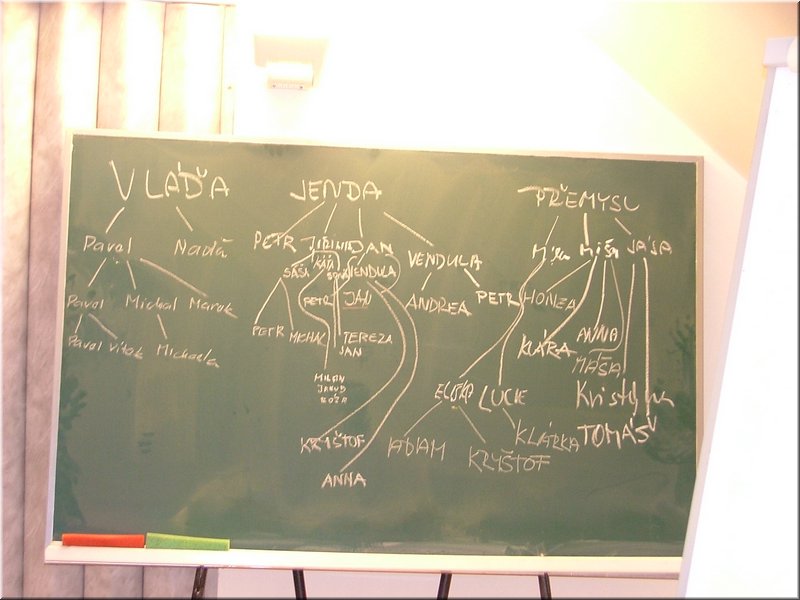 VLÁĎA JENDA PŘEMYSL
Pavel Naďa PETR JIŘINA DAN VENDULA Míla Míša JÁŠA
SÁŠA KÁŤA VENDULA
Pavel Michal Marek PETR JAN ANDREA PETR HONZA
PETR MICHAL TEREZA JAN ANNA
Pavel Vítek Michaela KLÁRA MÁŠA
MILAN
JAKUB
ELIŠKA LUCIE Kristýna
KRYŠTOF ADAM KLÁRKA TOMÁŠ
KRYŠTOF
ANNA